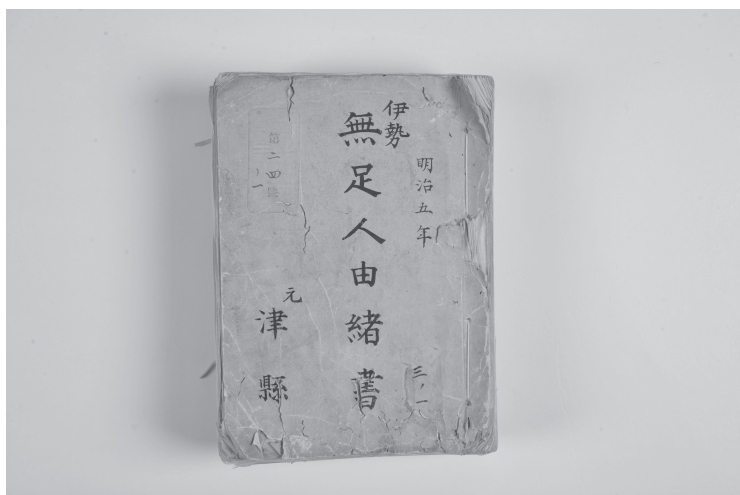 明治五年
三ノ一
伊勢
無足人由緒書
元
津縣
第二四號
一